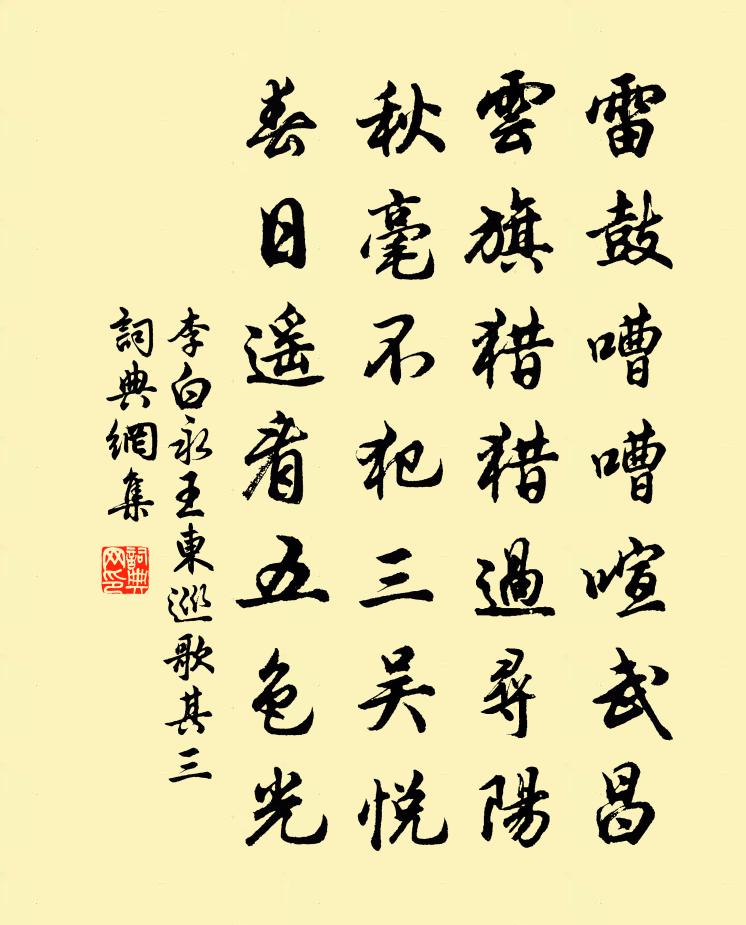 雷鼓嘈嘈喧武昌
雲旗猎猎過尋陽
秋毫不犯三吴悦
春日遥看五色光
李白永王東巡歌其三
詞典網集
詞典网印